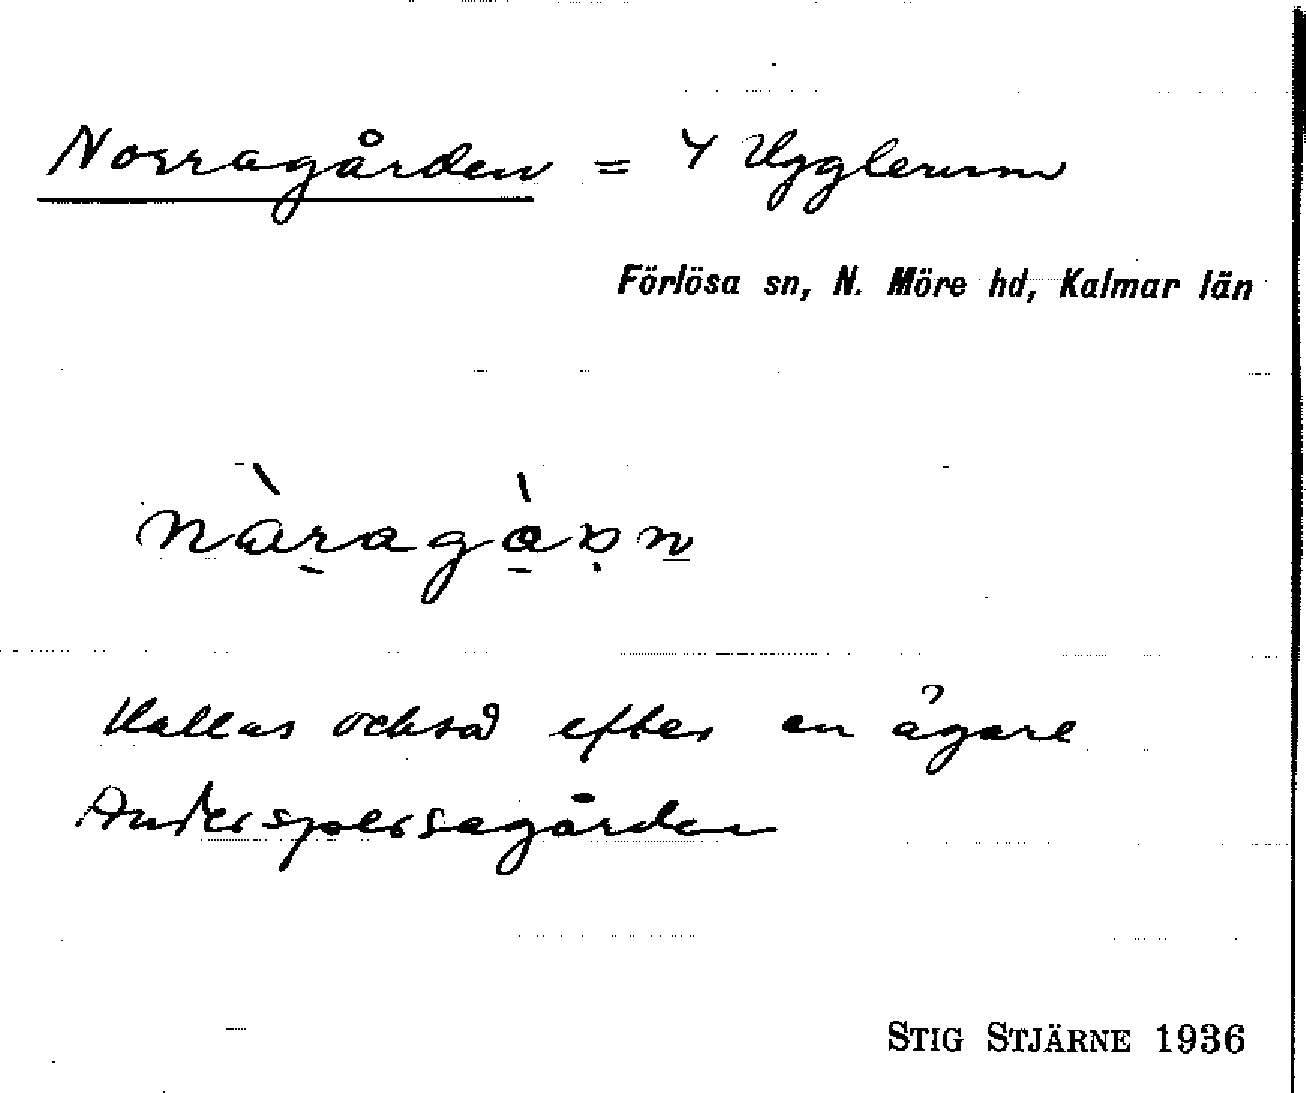 Norragården = 4 Ugglerum
Förlösa sn, N. Möre hd, Kalmar län
Kallas också efter en ägare
Anderspersagården
STIG STJÄRNE 1936